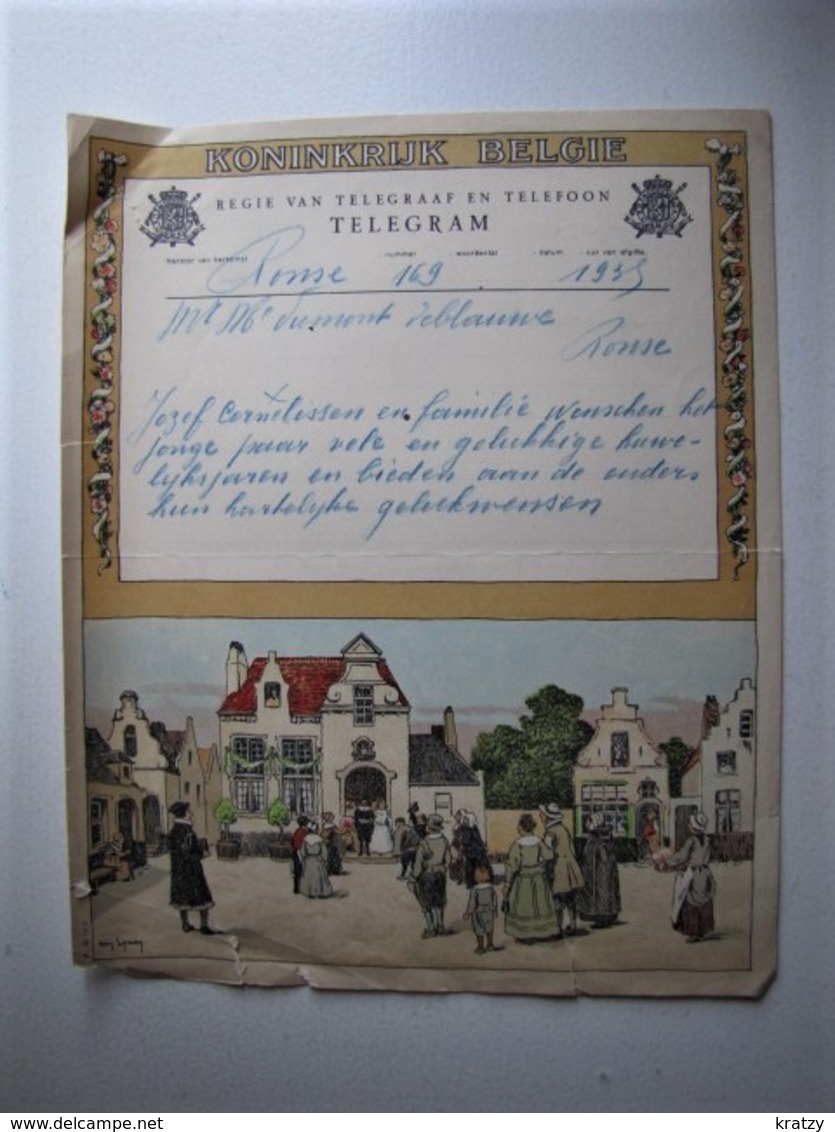 KONINKRIJK BELGIE
REGIE VAN TELEGRAAF EN TELEFOON
TELEGRAM
Kantoor van herkomst nummer woordental datum uur van afgifte
Ronse 169 1935
Mr Me Dumont Deblauwe
Ronse
Jozef Cornelissen en familie wenschen het
jonge paar vele en gelukkige huwe-
lijksjaren en bieden aan de ouders
hun hartelijke gelukwensen
delcampe.net
kratzy